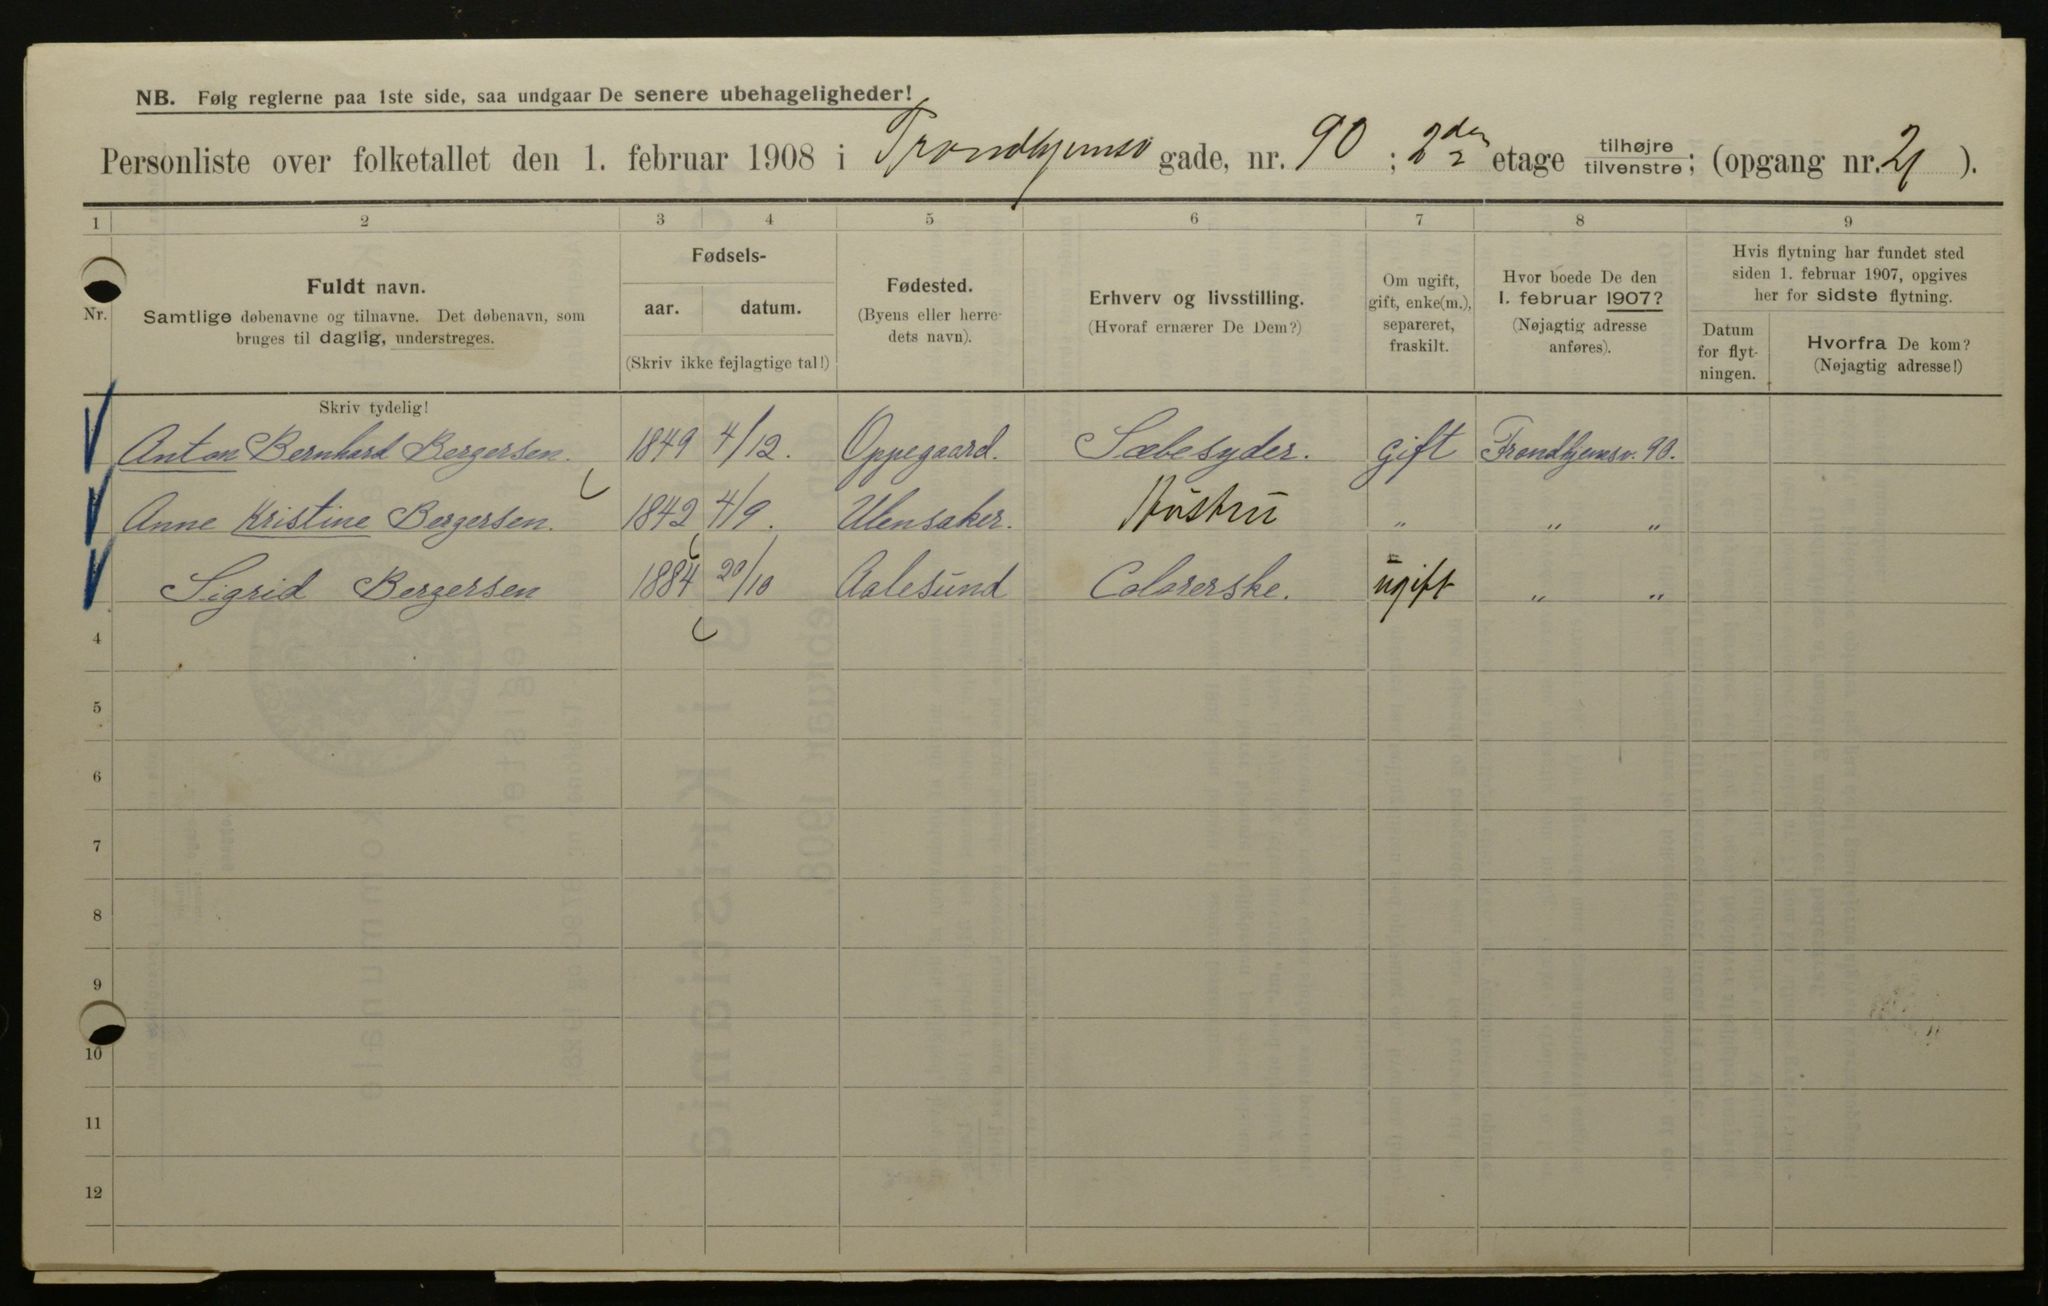 NB. Følg reglerne paa 1ste side, saa undgaar De senere ubehageligheder!
Personliste over folketallet den 1. februar 1908 i Trondhjemsv gade, nr. 90 ; 2den etage tilhøjre tilvenstre; (opgang nr. 2 ).
1 2 3 4 5 6 7 8 9
Nr.
Fuldt navn.
Samtlige døbenavne og tilnavne. Det døbenavn, som
bruges til daglig, understreges.
Fødsels-
aar. datum.
(Skriv ikke fejlagtige tal!)
Fødested.
(Byens eller herre-
dets navn).
Erhverv og livsstilling.
(Hvoraf ernærer De Dem?)
Om ugift,
gift, enke(m.),
separeret,
fraskilt.
Hvor boede De den
1. februar 1907?
(Nøjagtig adresse
anføres).
Hvis flytning har fundet sted
siden 1. februar 1907, opgives
her for sidste flytning.
Datum
for flyt-
ningen.
Hvorfra De kom?
(Nøjagtig adresse!)
Skriv tydelig!
Anton Bernhard Bergersen. 1849 4/12. Oppegaard. Sæbesyder. gift Trondhjemsv. 90.
Anne Kristine Bergersen. 1842 4/9. Ulensaker. Hustru " " "
Sigrid Bergersen 1884 20/10 Aalesund Colorerske. ugift " "
4
5
6
7
8
9
10
11
12